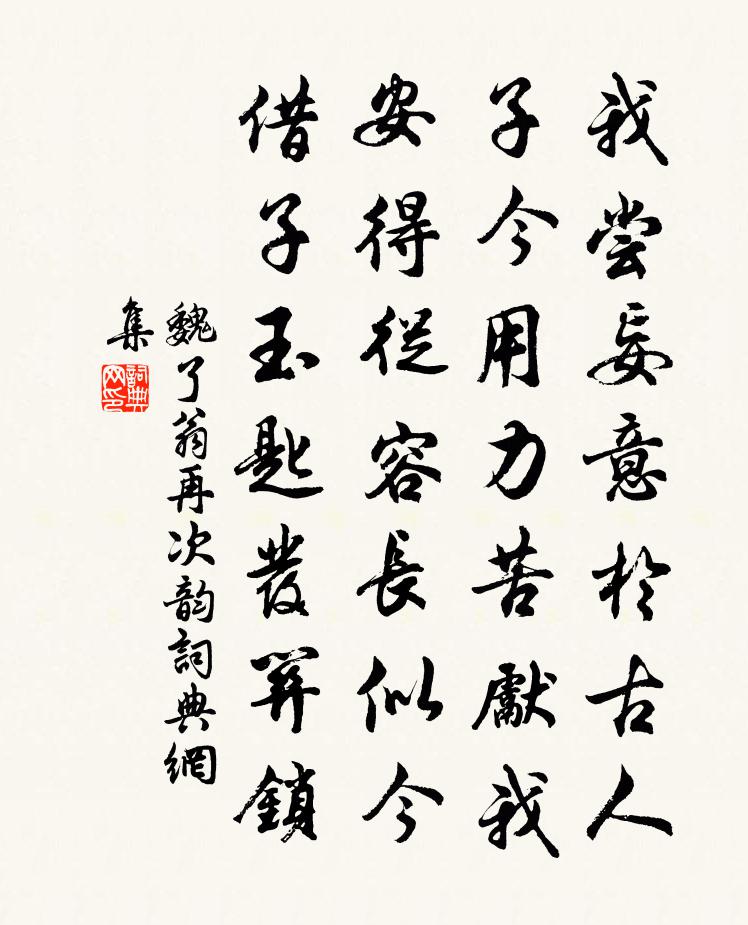 我嘗妄意於古人
子今用力苦獻我
安得從容長似今
借子玉匙發笄鎖
魏了翁再次韵詞典網
集
詞典网印